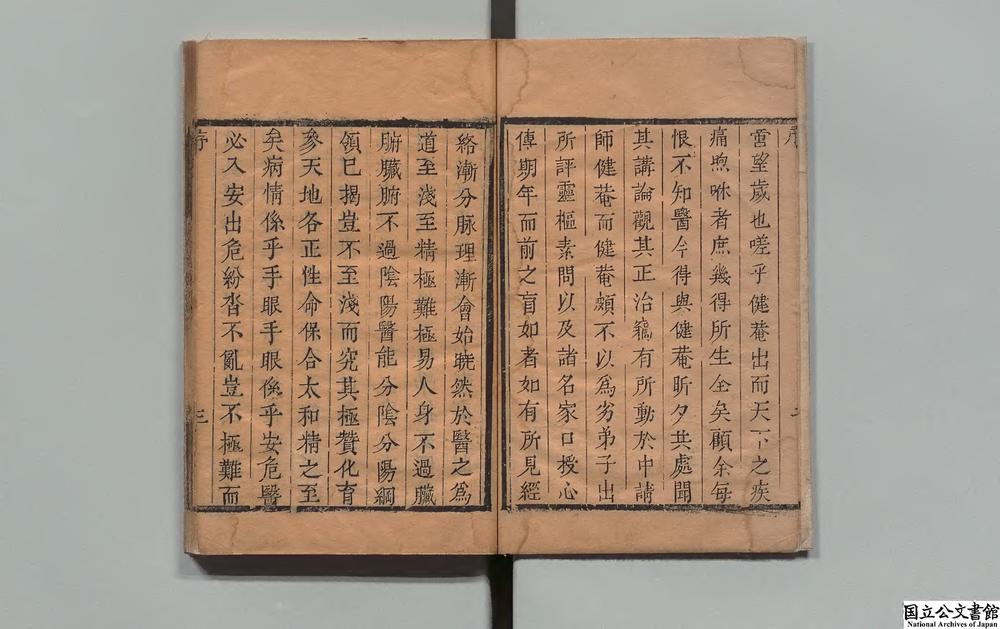 序
啻望歲也嗟乎健菴出而天下之疾
痛喣咻者庶幾得所生全矣顧余每
恨不知醫今得與健菴昕夕共處聞
其講論觀其正治竊有所動於中請
師健菴而健菴頗不以為劣弟子出
所評靈樞素問以及諸名家口授心
傳期年而前之盲如者如有所見經
絡漸分脉理漸會始曉然於醫之為
道至淺至精極難極易人身不過臟
腑臟腑不過陰陽醫能分陰分陽綱
領已揭豈不至淺而究其極贊化育
參天地各正性命保合太和精之至
矣病情係乎手眼手眼係乎安危醫
必入安出危紛沓不亂豈不極難而
序
三
国立公文書館
National Archives of Japan